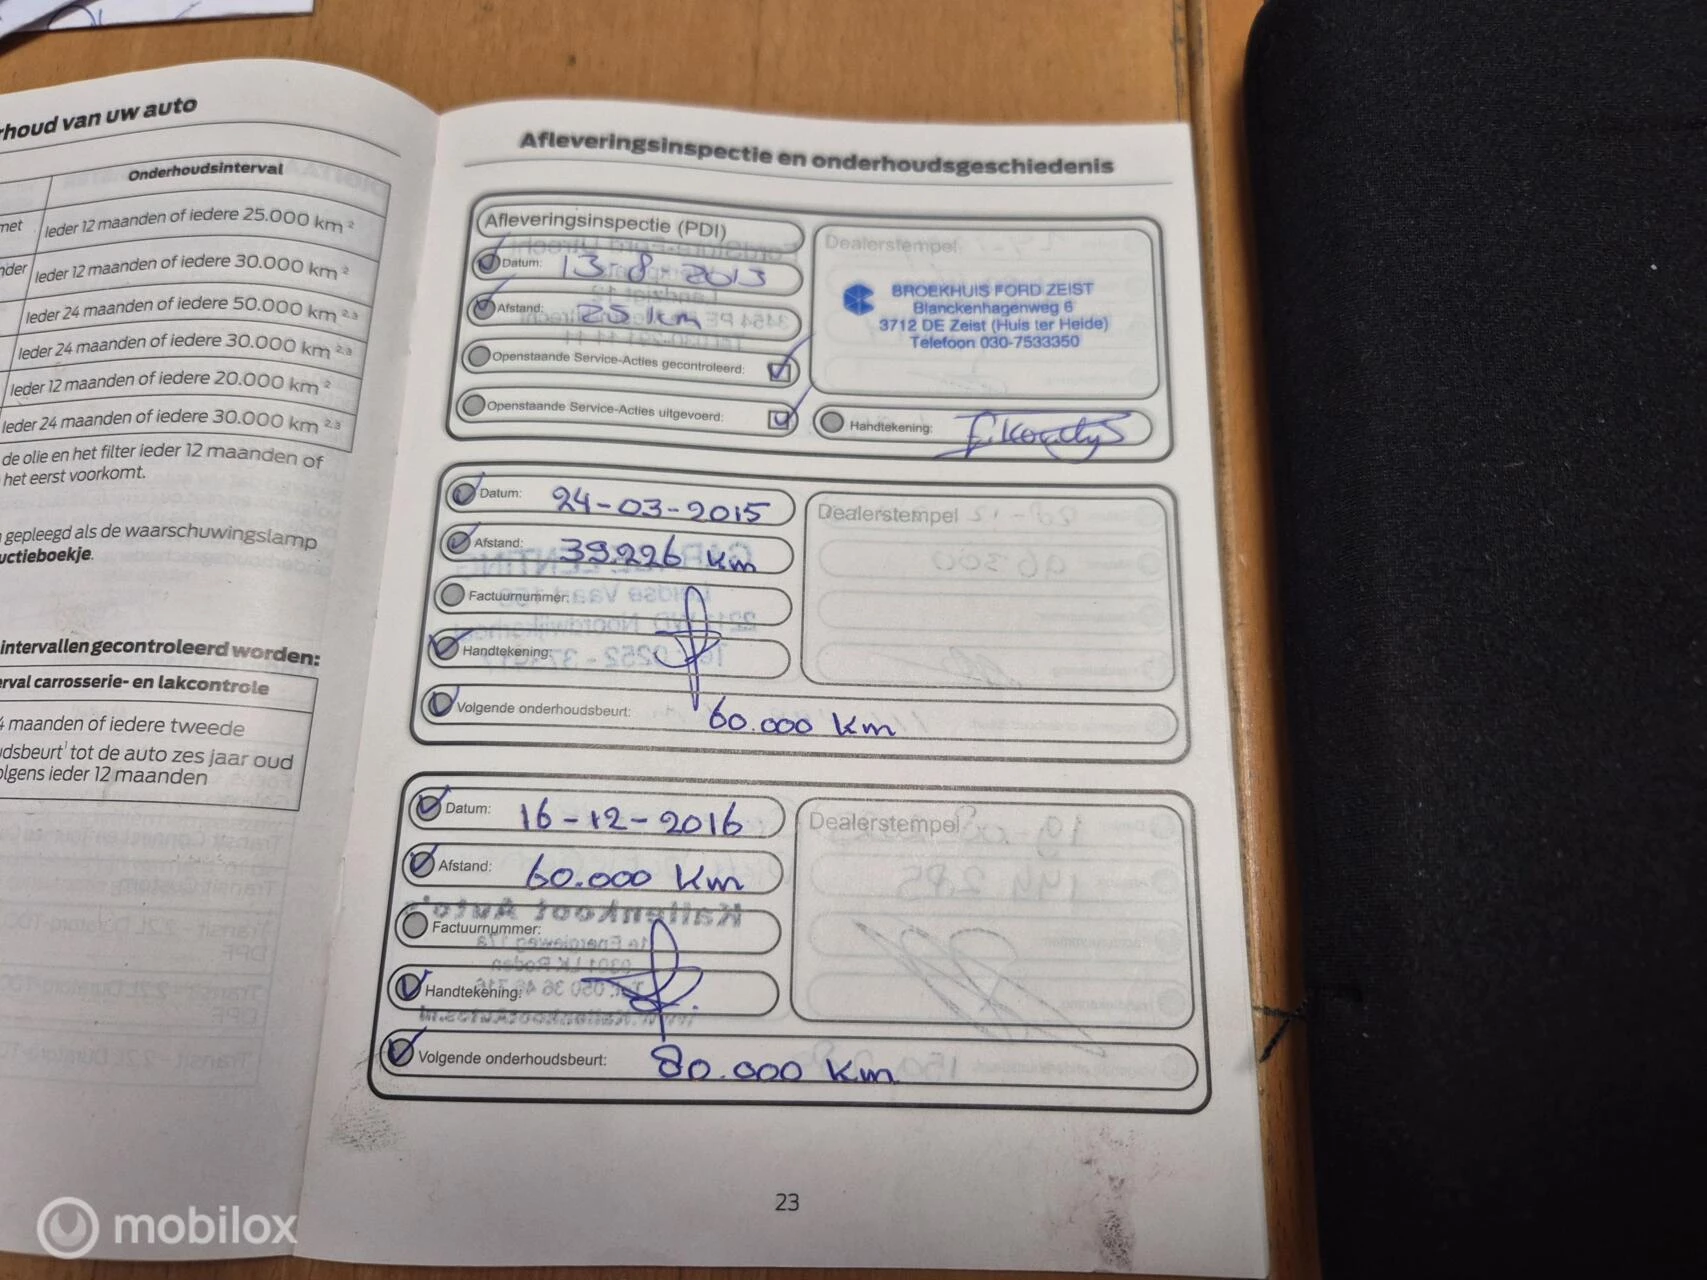 rhoud van uw auto
Onderhoudsinterval
met
Ieder 12 maanden of iedere 25.000 km ²
nder
Ieder 12 maanden of iedere 30.000 km ²
Ieder 24 maanden of iedere 50.000 km ²·³
Ieder 24 maanden of iedere 30.000 km ²·³
Ieder 12 maanden of iedere 20.000 km ²
Ieder 24 maanden of iedere 30.000 km ²·³
de olie en het filter ieder 12 maanden of
het eerst voorkomt.
gepleegd als de waarschuwingslamp
uctieboekje.
intervallen gecontroleerd worden:
erval carrosserie- en lakcontrole
4 maanden of iedere tweede
udsbeurt¹ tot de auto zes jaar oud
olgens ieder 12 maanden
Afleveringsinspectie en onderhoudsgeschiedenis
Afleveringsinspectie (PDI)
Datum: 13-8-2013
Afstand: 25 km
Openstaande Service-Acties gecontroleerd:
Openstaande Service-Acties uitgevoerd:
Dealerstempel
BROEKHUIS FORD ZEIST
Blanckenhagenweg 6
3712 DE Zeist (Huis ter Heide)
Telefoon 030-7533350
Handtekening:
Datum: 24-03-2015
Afstand: 39.226 km
Factuurnummer:
Handtekening:
Dealerstempel
Volgende onderhoudsbeurt: 60.000 km
Datum: 16-12-2016
Afstand: 60.000 km
Factuurnummer:
Handtekening:
Dealerstempel
Volgende onderhoudsbeurt: 80.000 km
23
mobilox